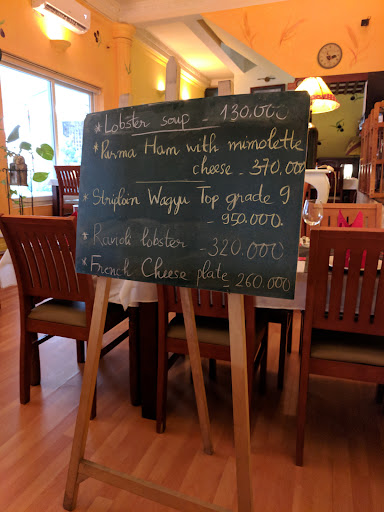 * Lobster soup - 130,000
* Parma Ham with mimolette
cheese - 370,000
* Striploin Wagyu Top grade 9
- 950.000.
* Ravioli lobster - 320.000
* French Cheese plate 260.000